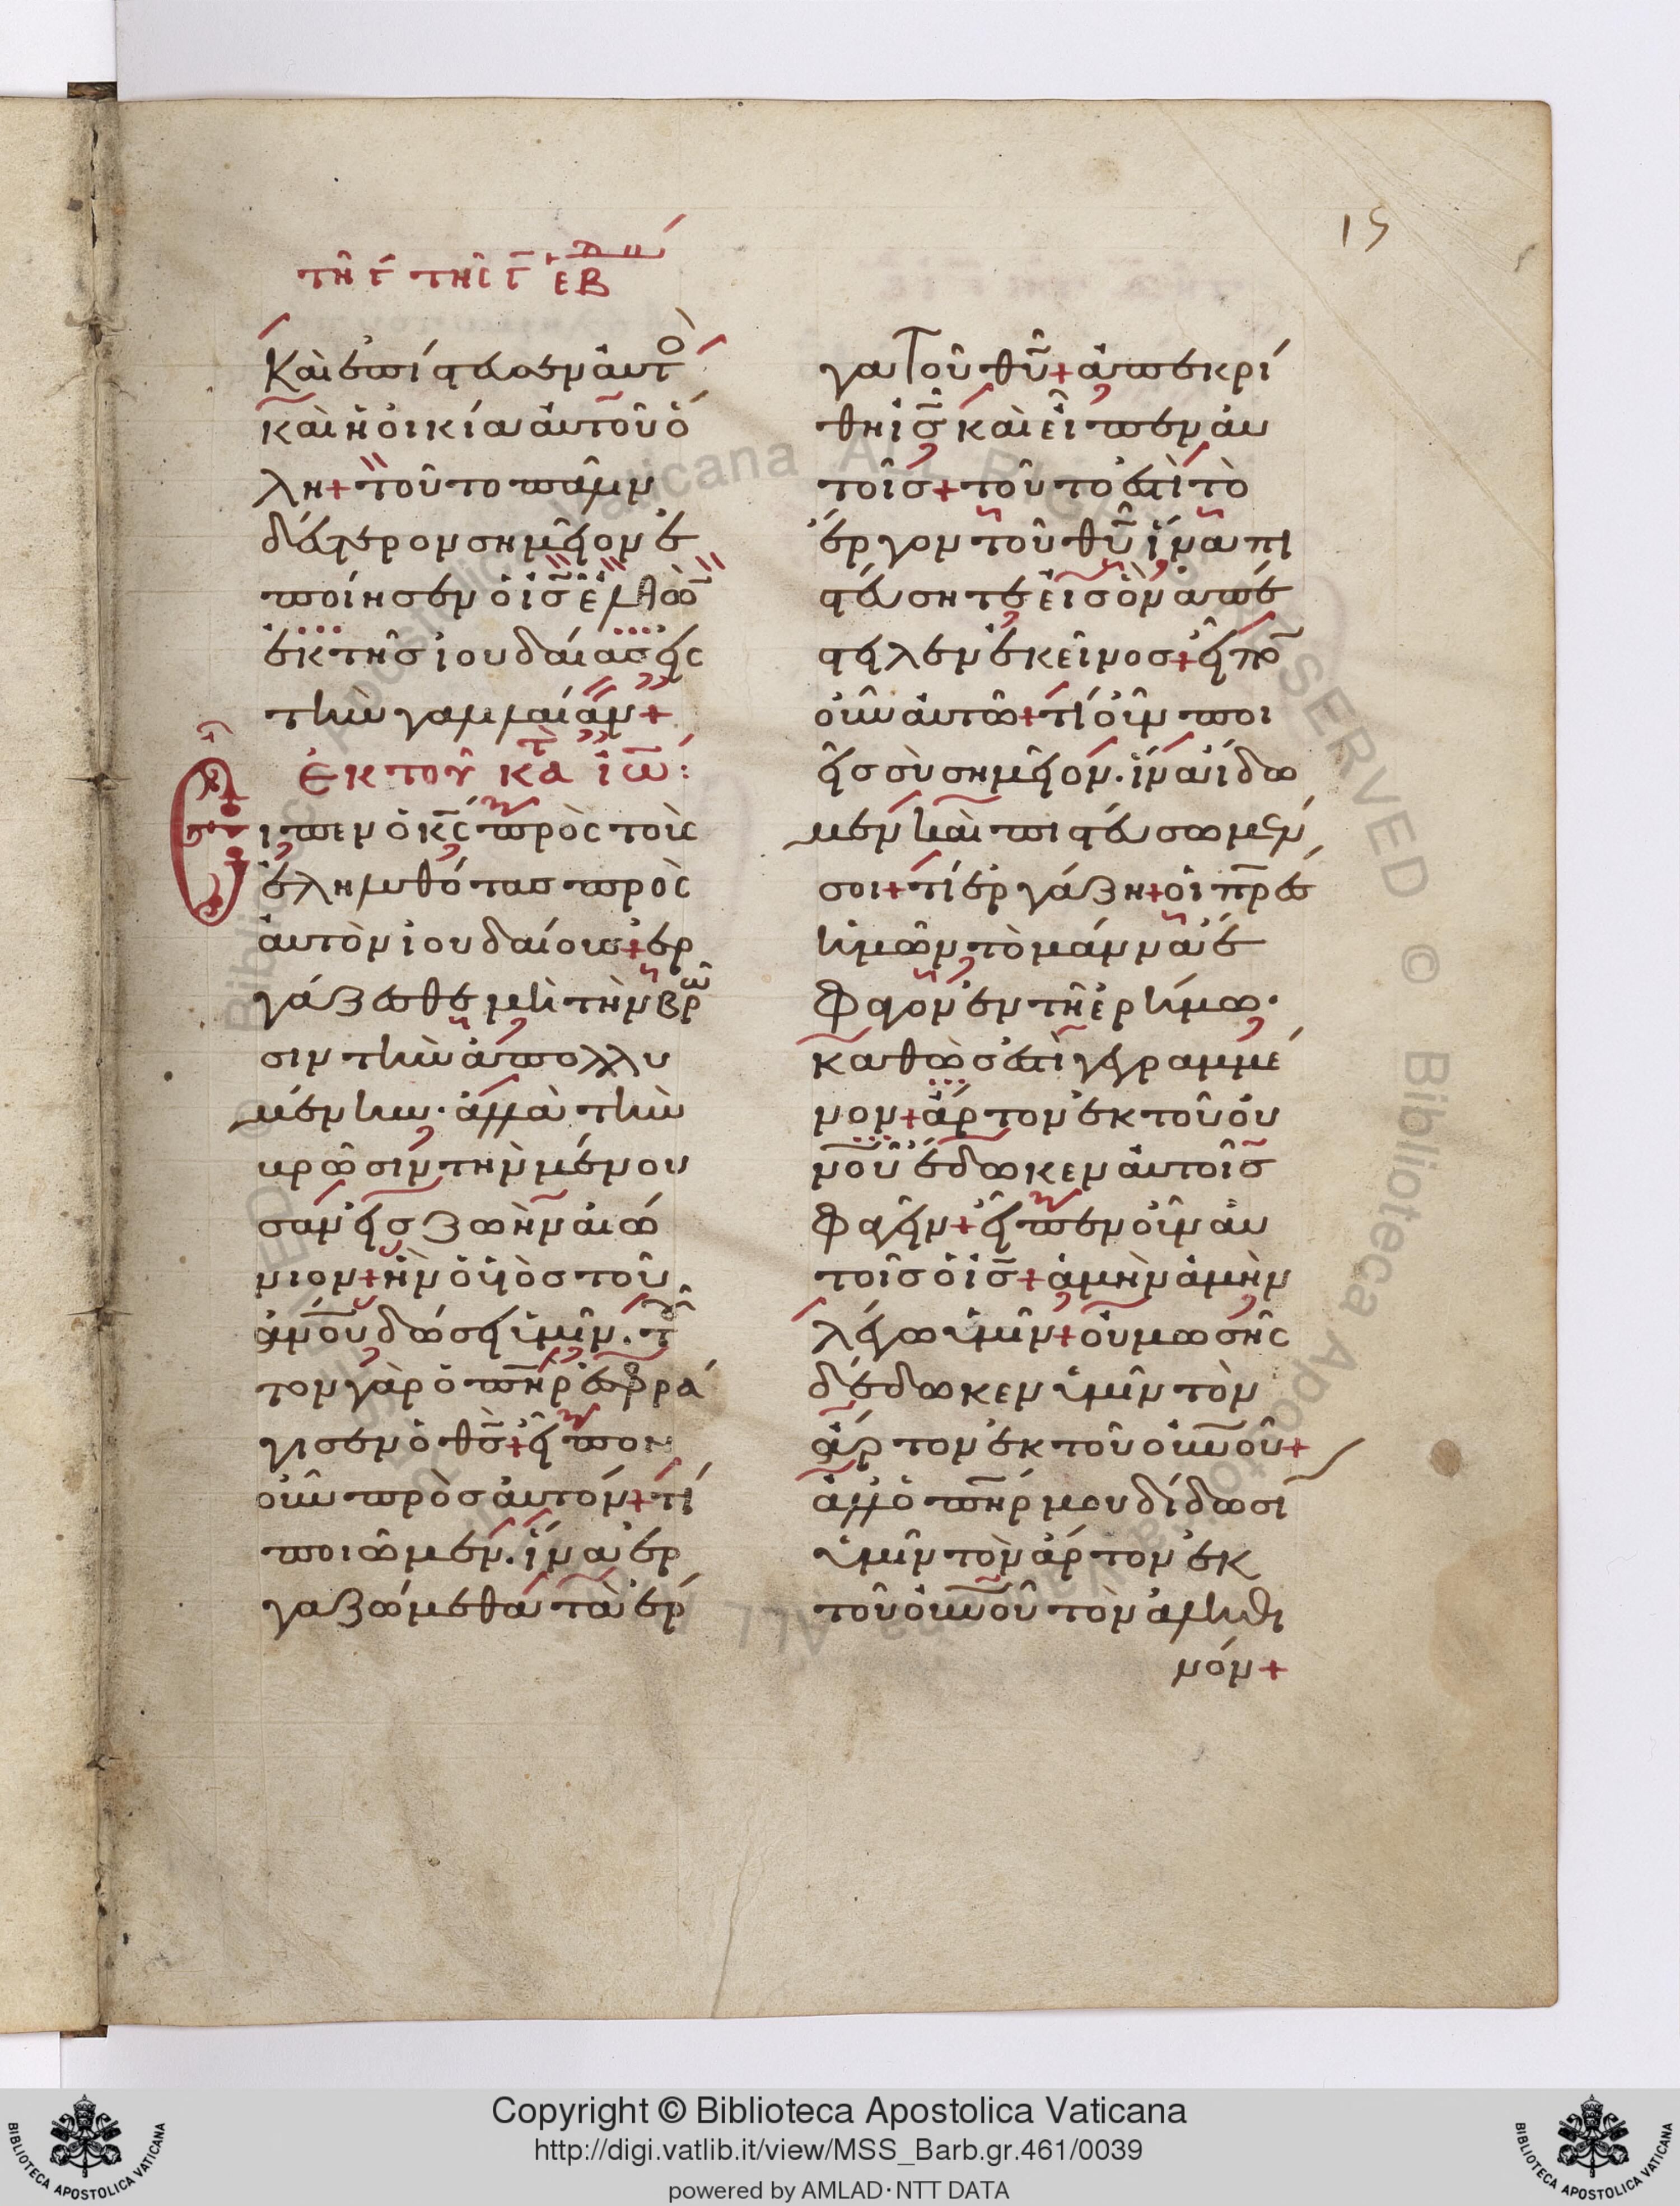 15
τῆ ϛ´ τῆς γ ἑβδ
Καὶ ἐπίστευσεν αὐτὸ
καὶ ἡ οἰκία αὐτοῦ ὅ
λη + τοῦτο πάλιν
δεύτερον σημεῖον ἐ
ποίησεν ὁ ις̅ ἐλθὼ
ἐκ τῆς ἰουδαίας εἰς
τὴν γαλλιλαίαν +
Ἐκ τοῦ κατὰ ἰω̅:
Εἶπεν ὁ κς̅ πρὸς τοὺς
ἐληλυθότας πρὸς
αὐτὸν ἰουδαίους + ἐρ
γάζεσθε μὴ τὴν βρῶ
σιν τὴν ἀπολλυ
μένην · ἀλλὰ τὴν
βρῶσιν τὴν μένου
σαν εἰς ζωὴν αἰώ
νιον + ἣν ὁ υἱὸς τοῦ
ἀνο̅υ δώσει ὑμῖν · τοῦ
τον γὰρ ὁ πη̅ρ ἐσφρά
γισεν ὁ θς̅ + εἶπον
οὖν πρὸς αὐτόν + τί
ποιῶμεν · ἵνα ἐρ
γαζώμεθα τὰ ἔρ
γα τοῦ θυ̅ + ἀπεκρί
θη ις̅ καὶ εἶπεν αὐ
τοῖς + τοῦτό ἐστι τὸ
ἔργον τοῦ θυ̅ ἵνα πι
στεύσητε εἰς ὃν ἀπέ
στειλεν ἐκεῖνος + εἶπον
οὖν αὐτῶ + τί οὖν ποι
εῖς σὺ σημεῖον · ἵνα ἴδω
μεν καὶ πιστεύσωμέν
σοι + τί ἐργάζη + οἱ πρ̅ες
ἡμῶν τὸ μάννα ἔ
φαγον ἐν τῆ ἐρήμω ·
καθώς ἐστι γεγραμμέ
νον + ἄρτον ἐκ τοῦ οὐ
νο̅ῦ ἔδωκεν αὐτοῖς
φαγεῖν + εἶπεν οὖν αὐ
τοῖς ὁ ις̅ + ἀμὴν ἀμὴν
λέγω ὑμῖν + οὐ μωσῆς
δέδωκεν ὑμῖν τὸν
ἄρτον ἐκ τοῦ οὐνο̅ῦ +
ἀλλ' ὁ πη̅ρ μου δίδωσι
ὑμῖν τὸν ἄρτον ἐκ
τοῦ οὐνο̅ῦ τὸν ἀληθι
νόν +
Copyright © Biblioteca Apostolica Vaticana
http://digi.vatlib.it/view/MSS_Barb.gr.461/0039
powered by AMLAD·NTT DATA
BIBLIOTECA APOSTOLICA VATICANA
BIBLIOTECA APOSTOLICA VATICANA